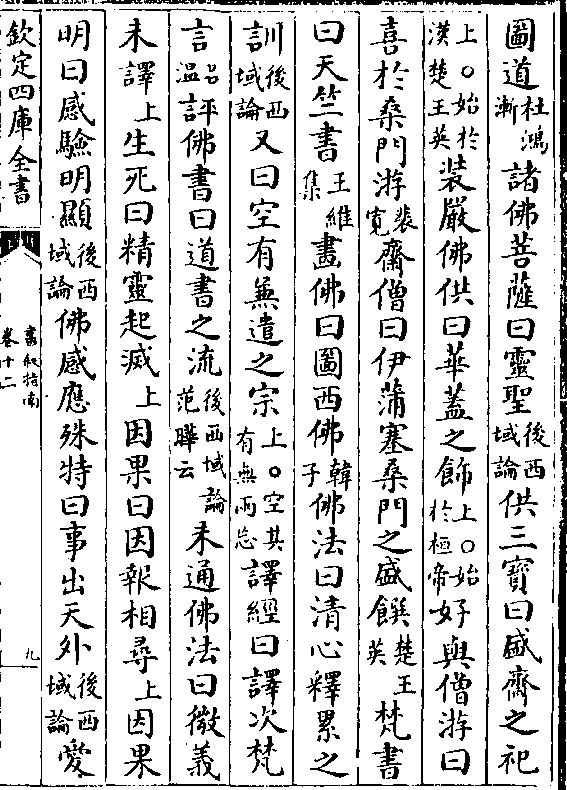 圖道杜鴻漸諸佛菩薩曰靈聖後西域論供三寶曰盛齋之祀
上○始於漢楚王英裝嚴佛供曰華蓋之飾上○始於桓帝好與僧游曰
喜於桑門游裴寬齋僧曰伊蒲塞桑門之盛饌楚王英梵書
曰天竺書王維集畫佛曰圖西佛韓子佛法曰清心釋累之
訓後西域論又曰空有兼遣之宗上○空其有無兩忘譯經曰譯次梵
言呂溫評佛書曰道書之流後西域論范曄云未通佛法曰微義
未譯上生死曰精靈起滅上因果曰因報相尋上因果
明曰感驗明顯後西域論佛感應殊特曰事出天外後西域論愛
欽定四庫全書
書叙指南
卷十二
九